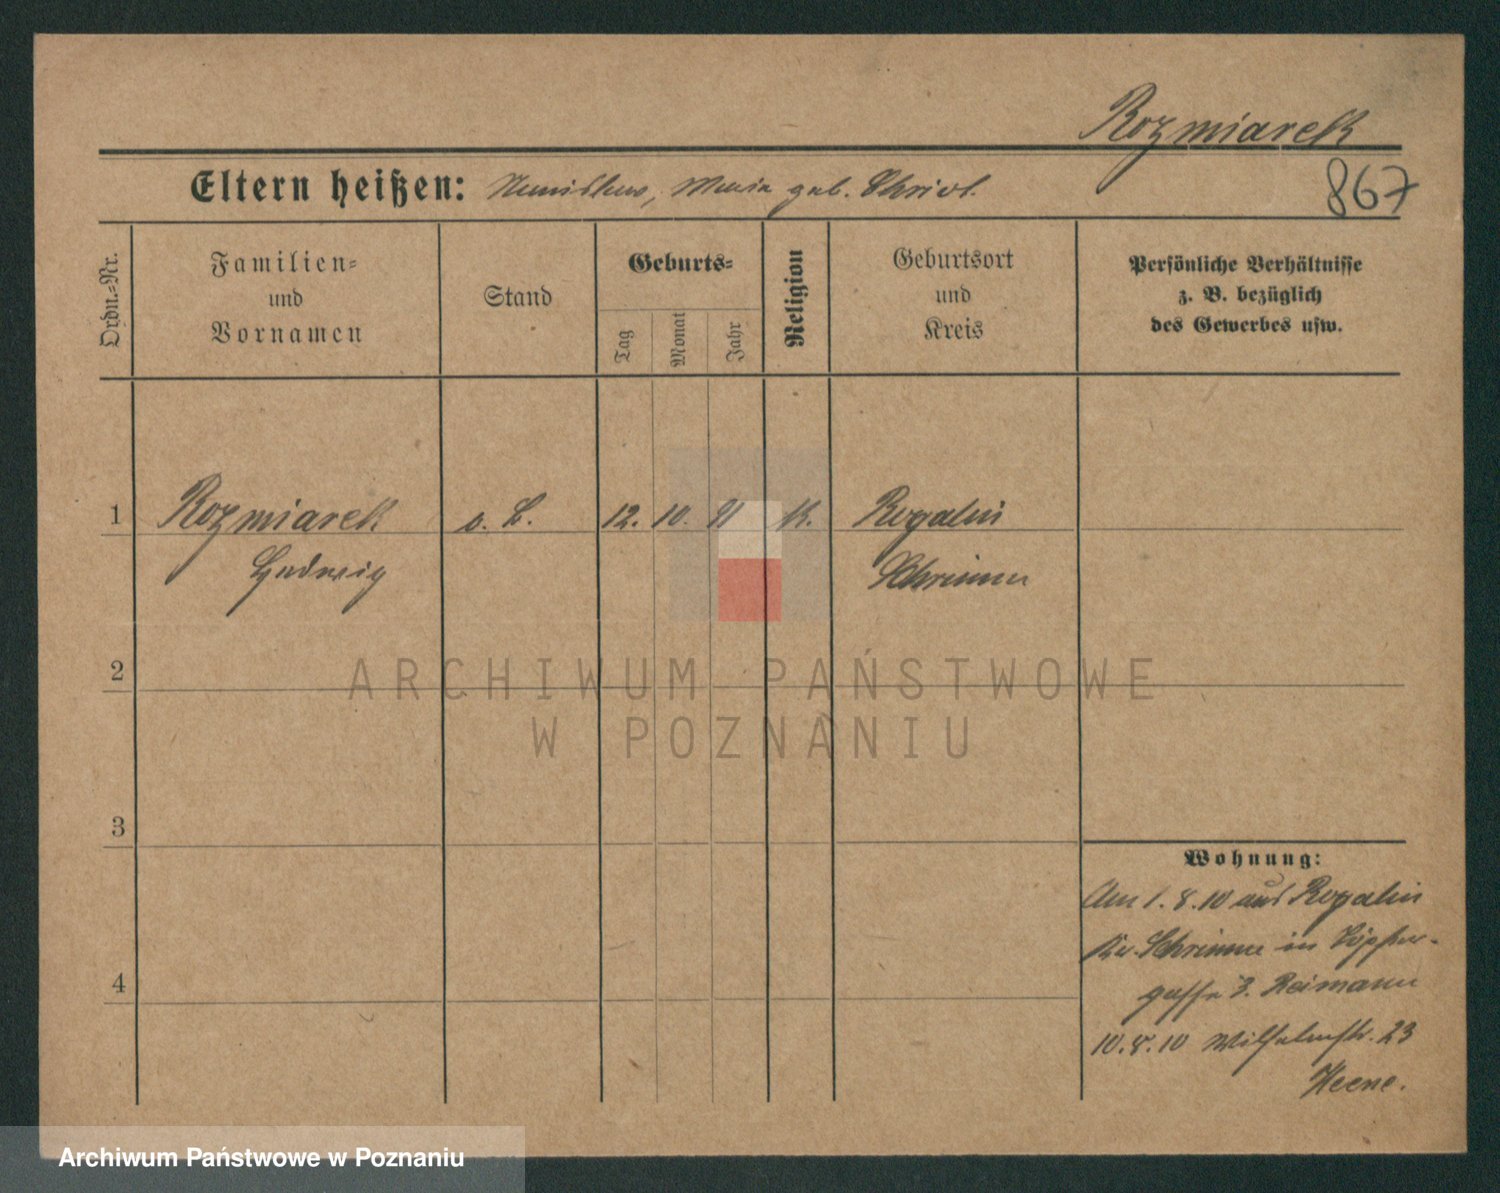 Rozmiarek
Eltern heißen: Stanislaus, Maria geb. Christ.
867
Ordn.-Nr.
Familien-
und
Vornamen
Stand
Geburts-
Tag
Monat
Jahr
Religion
Geburtsort
und
Kreis
Persönliche Verhältnisse
z. B. bezüglich
des Gewerbes usw.
1 Rozmiarek o. B. 12. 10. 91 k. Rogalin
Ludwig Schrimm
2
ARCHIWUM PAŃSTWOWE
W POZNANIU
3
4
Wohnung:
Am 1.8.10 aus Rogalin
Kr. Schrimm in Töpfer-
gasse 3. Reimann
10.8.10 Wilhelmstr. 23
Heene.
Archiwum Państwowe w Poznaniu